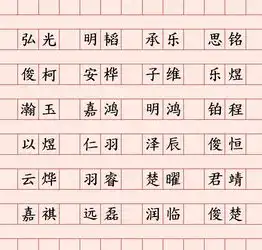 弘光 明韬 承乐 思铭
俊柯 安桦 子维 乐煜
瀚玉 嘉鸿 明鸿 铂程
以煜 仁羽 泽辰 俊恒
云烨 羽睿 楚曜 君靖
嘉祺 远磊 润临 俊楚